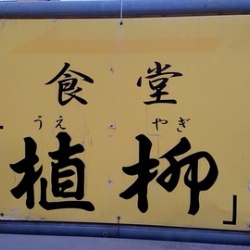 食堂
うえ やぎ
植柳」